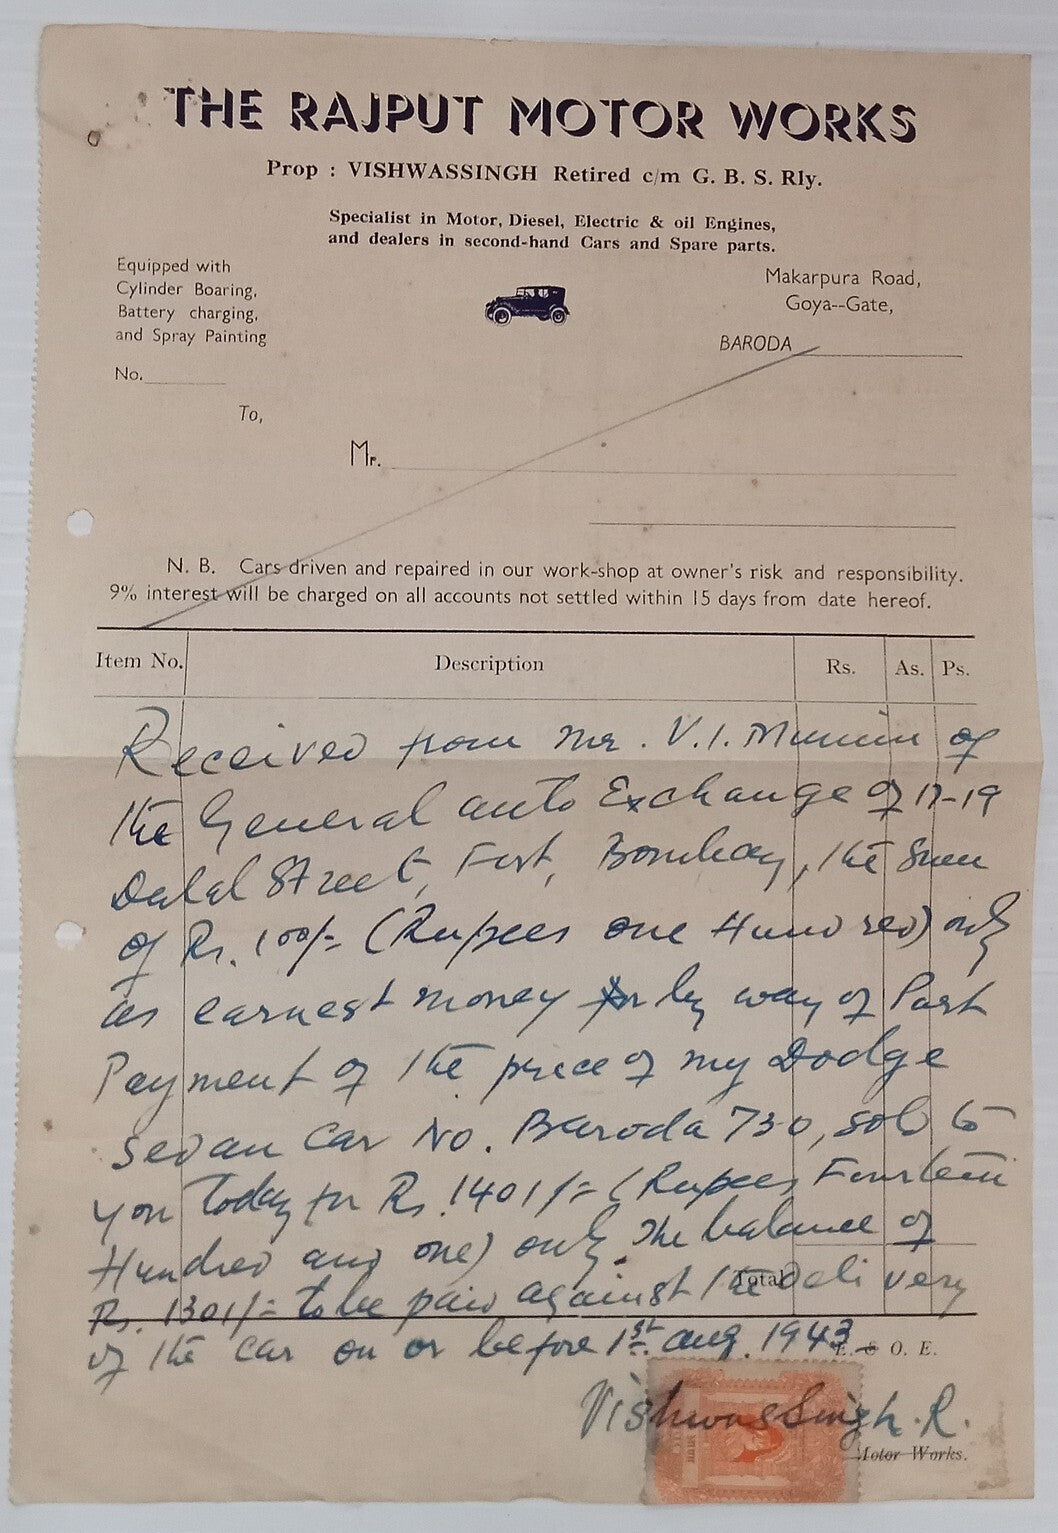 THE RAJPUT MOTOR WORKS
Prop : VISHWASSINGH Retired c/m G. B. S. Rly.
Specialist in Motor, Diesel, Electric & oil Engines,
and dealers in second-hand Cars and Spare parts.
Equipped with
Cylinder Boaring,
Battery charging,
and Spray Painting
Makarpura Road,
Goya--Gate,
BARODA
No.
To,
Mr.
N. B. Cars driven and repaired in our work-shop at owner's risk and responsibility.
9% interest will be charged on all accounts not settled within 15 days from date hereof.
Item No. Description Rs. As. Ps.
Received from Mr. V. I. of
the General auto Exchange of 17-19
Dalal Street, Fort, Bombay, the sum
of Rs. 100/- (Rupees one Hundred) only
as earnest money by way of Part
Payment of the price of my Dodge
Sedan Car No. Baroda 730, sold to
you today for Rs. 1401/- (Rupees Fourteen
Hundred and one) only. The balance of
Rs. 1301/- to be paid against the delivery
Total
of the car on or before 1st aug. 1943
E. & O. E.
Vishwas Singh. R.
Motor Works.